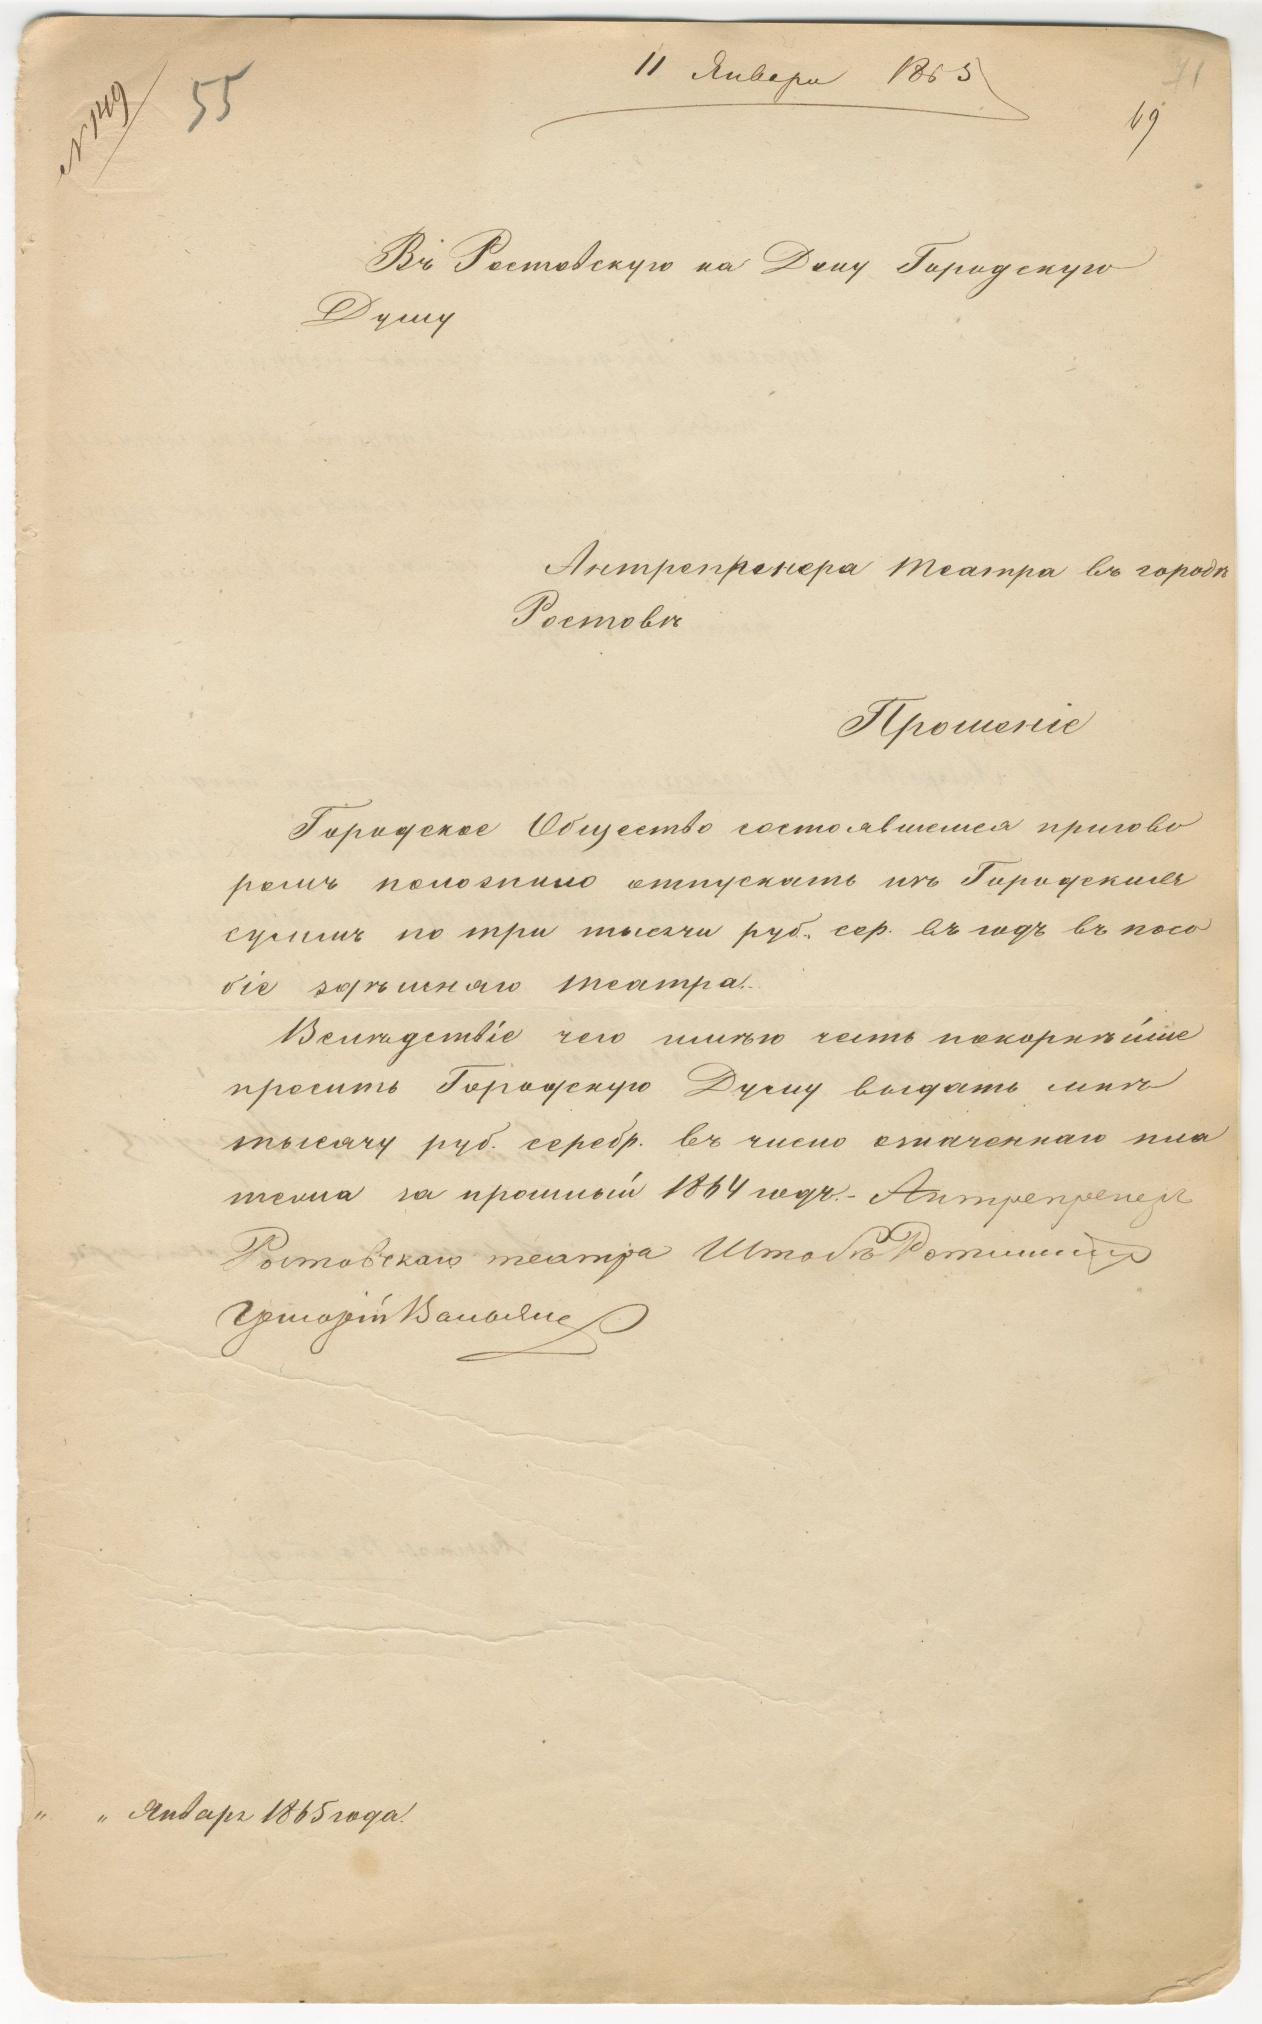 11 Января 1865
N 149
55
71
69
Въ Ростовскую на Дону Городскую
Думу
Антрепренера театра въ городѣ
Ростовѣ
Прошеніе
Городское Общество состоявшемся пригово
ромъ положило отпускать изъ Городскихъ
суммъ по три тысячи руб. сер. въ годъ въ посо
біе здѣшняго театра.
Вслѣдствіе чего имѣю честь покорнѣйше
просить Городскую Думу выдать мнѣ
тысячу руб. серебр. въ число означеннаго пла
тежа за прошлый 1864 годъ.- Антрепренеръ
Ростовскаго театра Штабъ Ротмистръ
Григорій Вальяно
" " Января 1865 года.